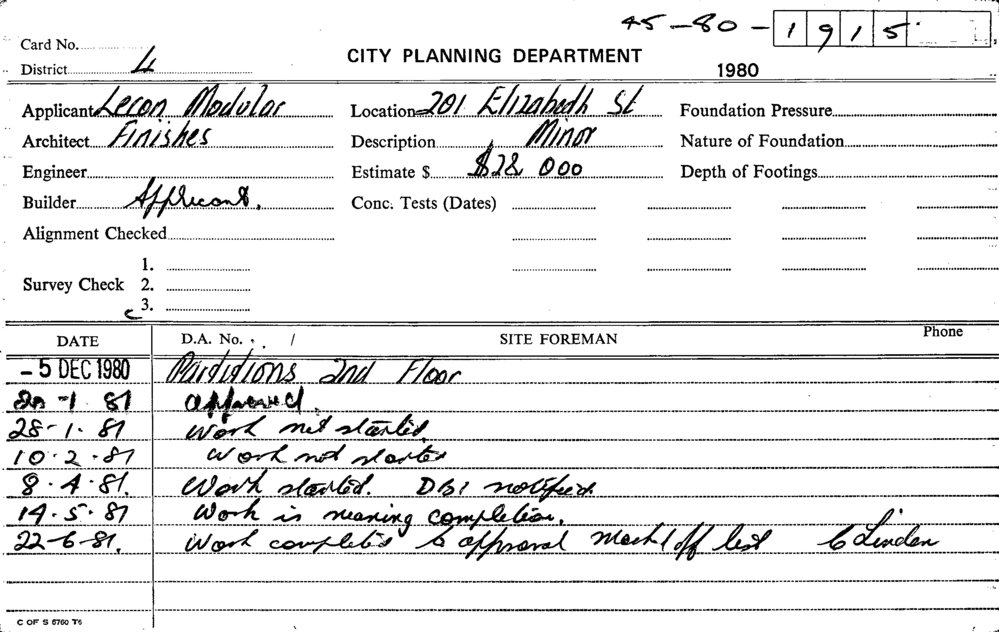 45-80-1915
Card No.
District 4
CITY PLANNING DEPARTMENT
1980
Applicant Lecon Modular
Location 201 Elizabeth St
Foundation Pressure
Architect Finishes
Description Minor
Nature of Foundation
Engineer
Estimate $ $28 000
Depth of Footings
Builder Applicant.
Conc. Tests (Dates)
Alignment Checked
1.
Survey Check 2.
3.
DATE D.A. No. / SITE FOREMAN Phone
- 5 DEC 1980 Partitions 2nd Floor
-1 81 approved.
28-1-81 Work not started.
10.2.81 Work not started
8.4.81. Work started. DBI notified
14.5.81 Work is nearing completion.
22-6-81. Work completed to approval Mark off list C Linden
C OF S 6760 T6